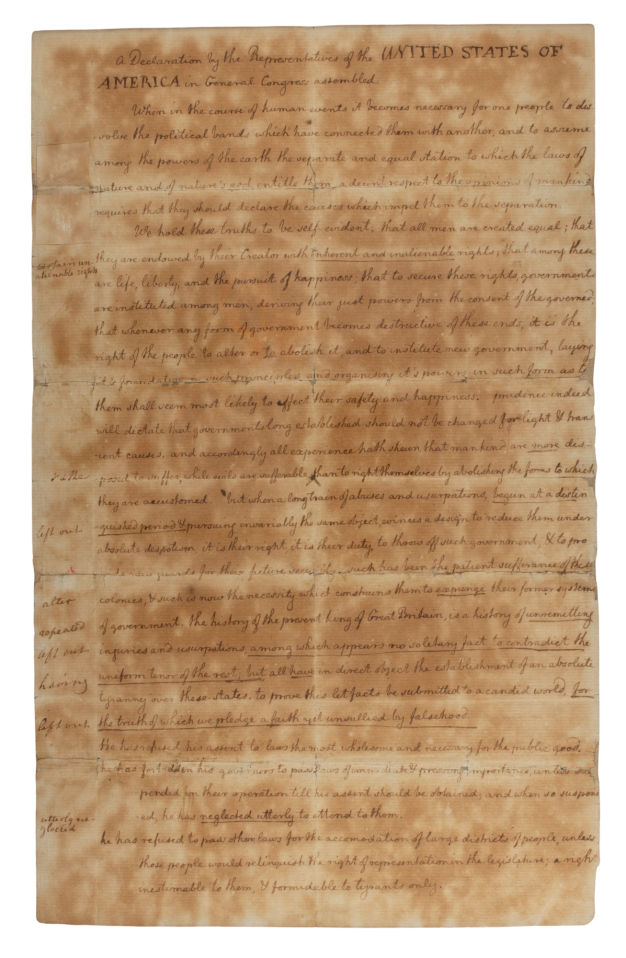 A Declaration by the Representatives of the UNITED STATES OF
AMERICA in General Congress assembled
When in the course of human events it becomes necessary for one people to dis
-solve the political bands which have connected them with another, and to assume
among the powers of the earth the separate and equal station to which the laws of
nature and of nature's god entitle them, a decent respect to the opinions of mankind
requires that they should declare the causes which impel them to the separation
We hold these truths to be self evident: that all men are created equal; that
certain un
alienable rights
they are endowed by their Creator with inherent and inalienable rights; that among these
are life, liberty, and the pursuit of happiness: that to secure these rights governments
are instituted among men, deriving their just powers from the consent of the governed;
that whenever any form of government becomes destructive of these ends, it is the
right of the people to alter or to abolish it, and to institute new government, laying
it's foundation such principles, and organising it's powers in such form as to
them shall seem most likely to effect their safety and happiness. prudence indeed
will dictate that governments long established should not be changed for light & tran
-sient causes. and accordingly all experience hath shewn that mankind are more dis
posed to suffer, while evils are sufferable, than to right themselves by abolishing the forms to which
they are accustomed. but when a long train of abuses and usurpations, begun at a distin
left out
guished period & pursuing invariably the same object, evinces a design to reduce them under
absolute despotism it is their right, it is their duty, to throw off such government, & to pro
new guards for their future such has been the patient sufferance of these
alter
colonies, & such is now the necessity which constrains them to expunge their former systems
repeated
of government. the history of the present king of Great Britain, is a history of unremitting
left out
injuries and usurpations, among which appears no solitary fact to contradict the
having
uniform tenor of the rest, but all have in direct object the establishment of an absolute
tyranny over these states. to prove this let facts be submitted to a candid world, for
left out
the truth of which we pledge a faith yet unsullied by falsehood.
He has refused his assent to laws the most wholesome and necessary for the public good.
he has forbidden his governors to pass laws of immediate & pressing importance, unless sus
pended in their operation till his assent should be obtained; and when so suspend
utterly ne
glected
ed, he has neglected utterly to attend to them.
he has refused to pass other laws for the accomodation of large districts of people, unless
those people would relinquish the right of representation in the legislature; a right
inestimable to them, & formidable to tyrants only.